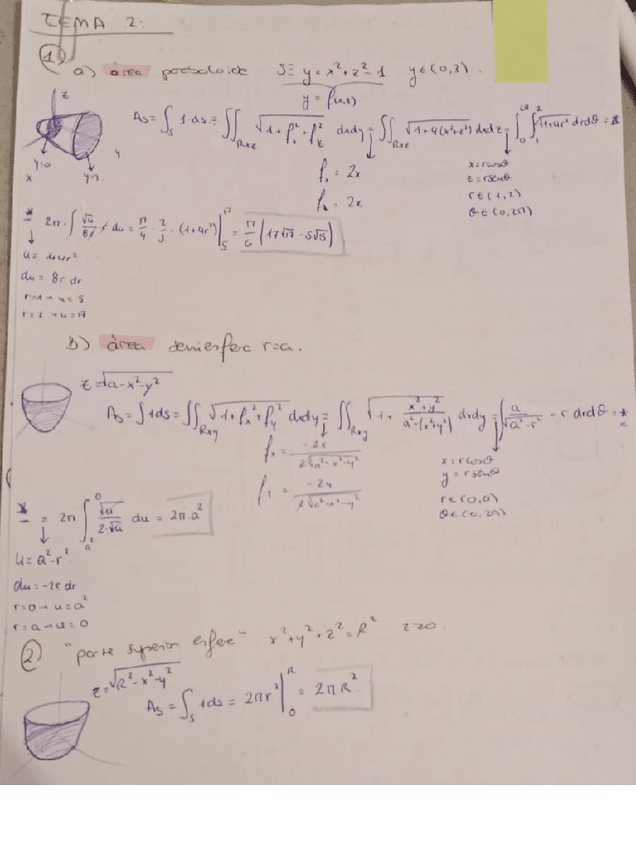 TEMA 2:
① a) área paraboloide S ≡ y = x² + z² - 1 y ∈ (0,3).
y = f(x,z)
z
As = ∫s 1·ds = ∬Rxz √(1 + fx² + fz²) dxdy = ∬Rxz √(1 + 4(x²+z²)) dxdz = ∫₀ ∫₁² √(1+4r²) r drdθ = *
y=0
x
y
fx = 2x
x = r cosθ
z = r senθ
r ∈ (1,2)
θ ∈ (0,2π)
* 2π · ∫ du = π/4 · 2/3 · (1+4r²) |₅¹⁷ = π/6 (17√17 - 5√5)
u = 1+4r²
du = 8r dr
r=1 → u=5
b) área semiesfera r=a.
z = √(a-x²-y²)
As = ∫ 1ds = ∬Rxy √(1 + fx² + fy²) dxdy = ∬Rxy √(1 + (x²+y²)/(a²-(x²+y²))) dxdy = ∫ a/√(a²-r²) - r drdθ = *
fx = -2x / 2√(a²-x²-y²)
-2y / 2√(a²-x²-y²)
x = r cosθ
y = r senθ
θ ∈ (0,2π)
* = 2π ∫ₐ²⁰ du = 2π·a²
u = a²-r²
du = -2r dr
r=0 → u=a²
r=a → u=0
② "parte superior esfera" x² + y² + z² = R²
z = √(R²-x²-y²)
As = ∫s 1ds = 2πr² |₀ᴿ = 2πR²